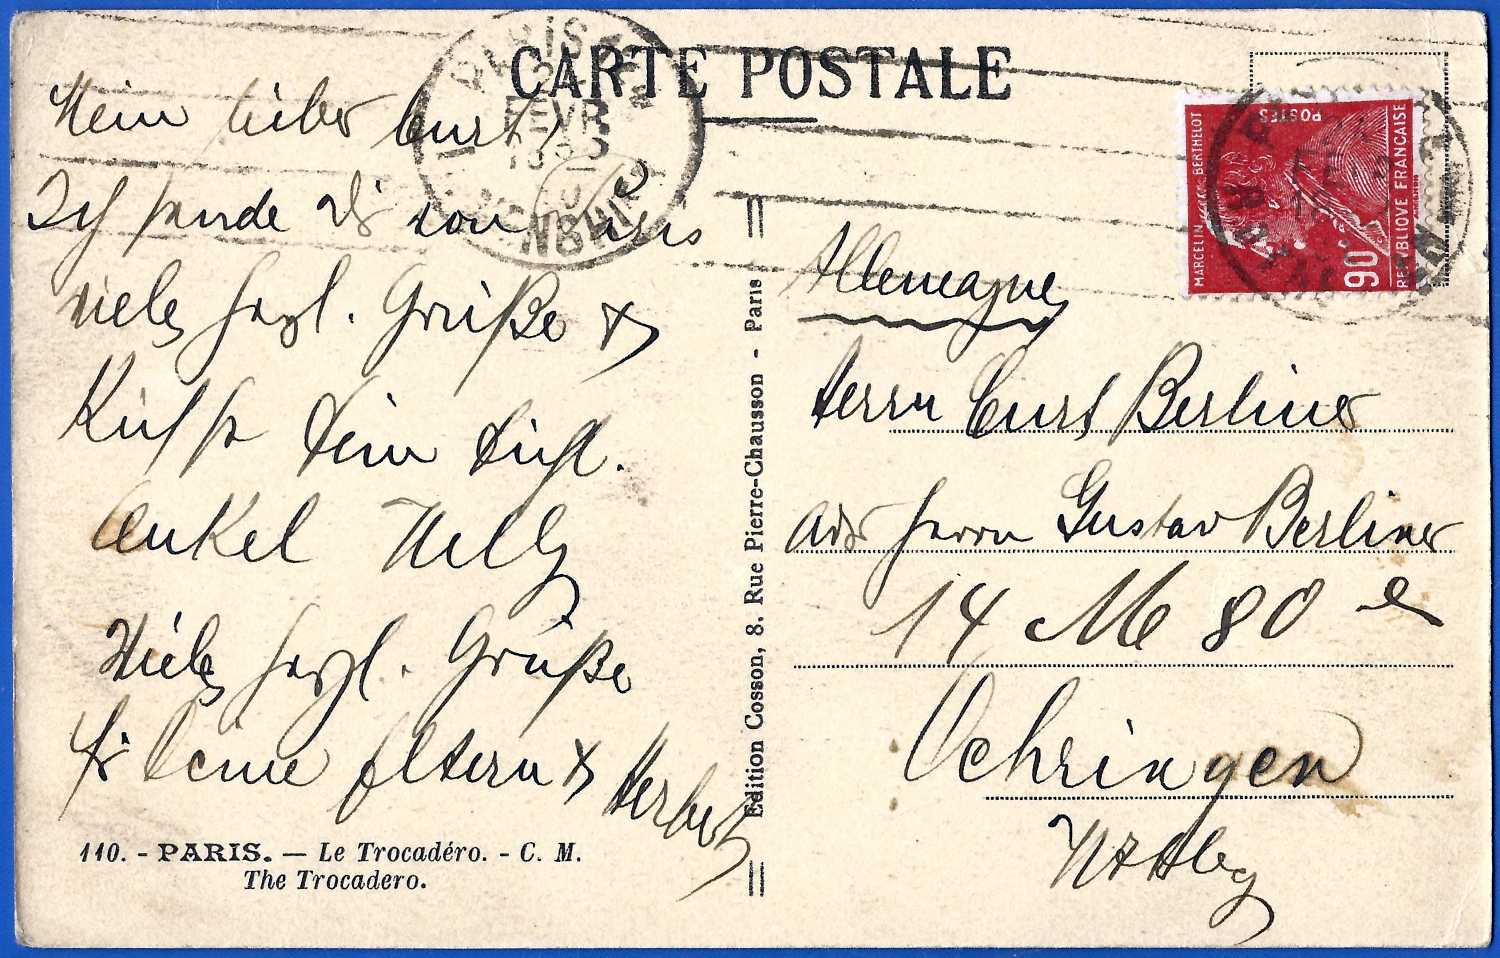 CARTE POSTALE
PARIS
24
FEVR
Mein lieber Curt,
Ich sende Dir von Paris
viele herzl. Grüße &
Küsse Dein Dichl.
Onkel Willy
Viele herzl. Grüße
für Deine Eltern & Herbert
110. - PARIS. — Le Trocadéro. - C. M.
The Trocadero.
Edition Cosson, 8. Rue Pierre-Chausson - Paris
MARCELIN BERTHELOT
POSTES
90
REPUBLIQUE FRANÇAISE
Allemagne
Herrn Curt Berliner
adr Herrn Gustav Berliner
14 M 80
Oehringen
Wttbg